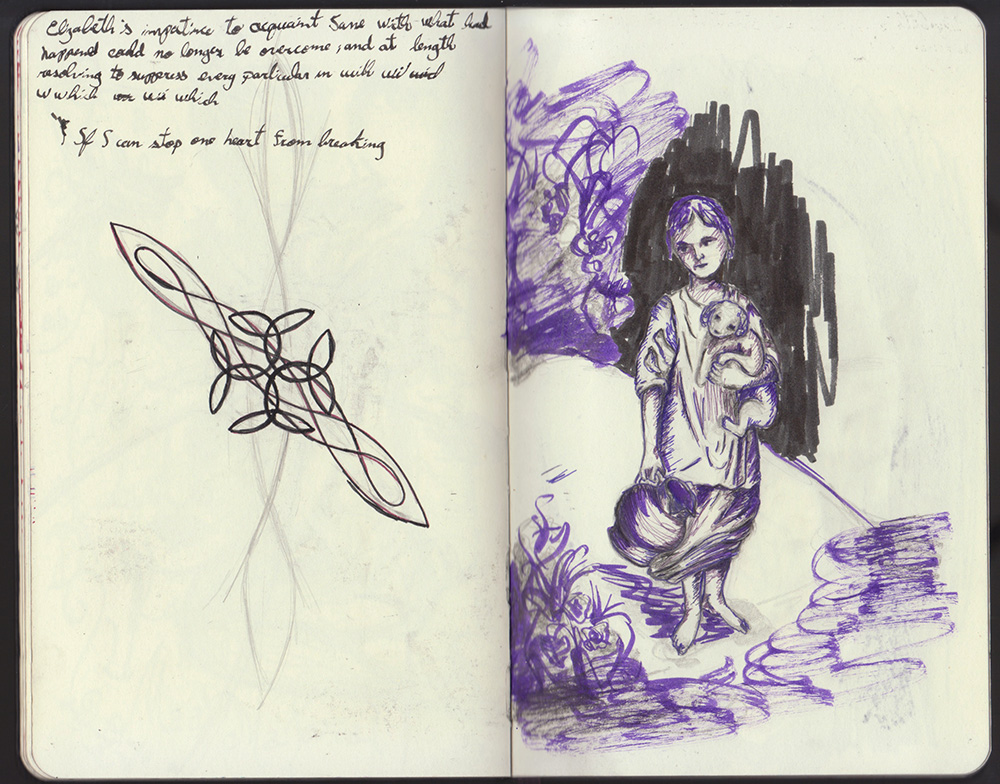 Elzabeth's impatince to acquaint Jane with what had
happened could no longer be overcome, and at length
resolving to suppress every particular in with
w which which
If I can stop one heart from breaking